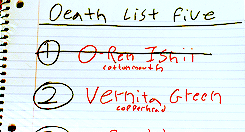 Death List Five
1 O-Ren Ishii
cottonmouth
2 Vernita Green
copperhead